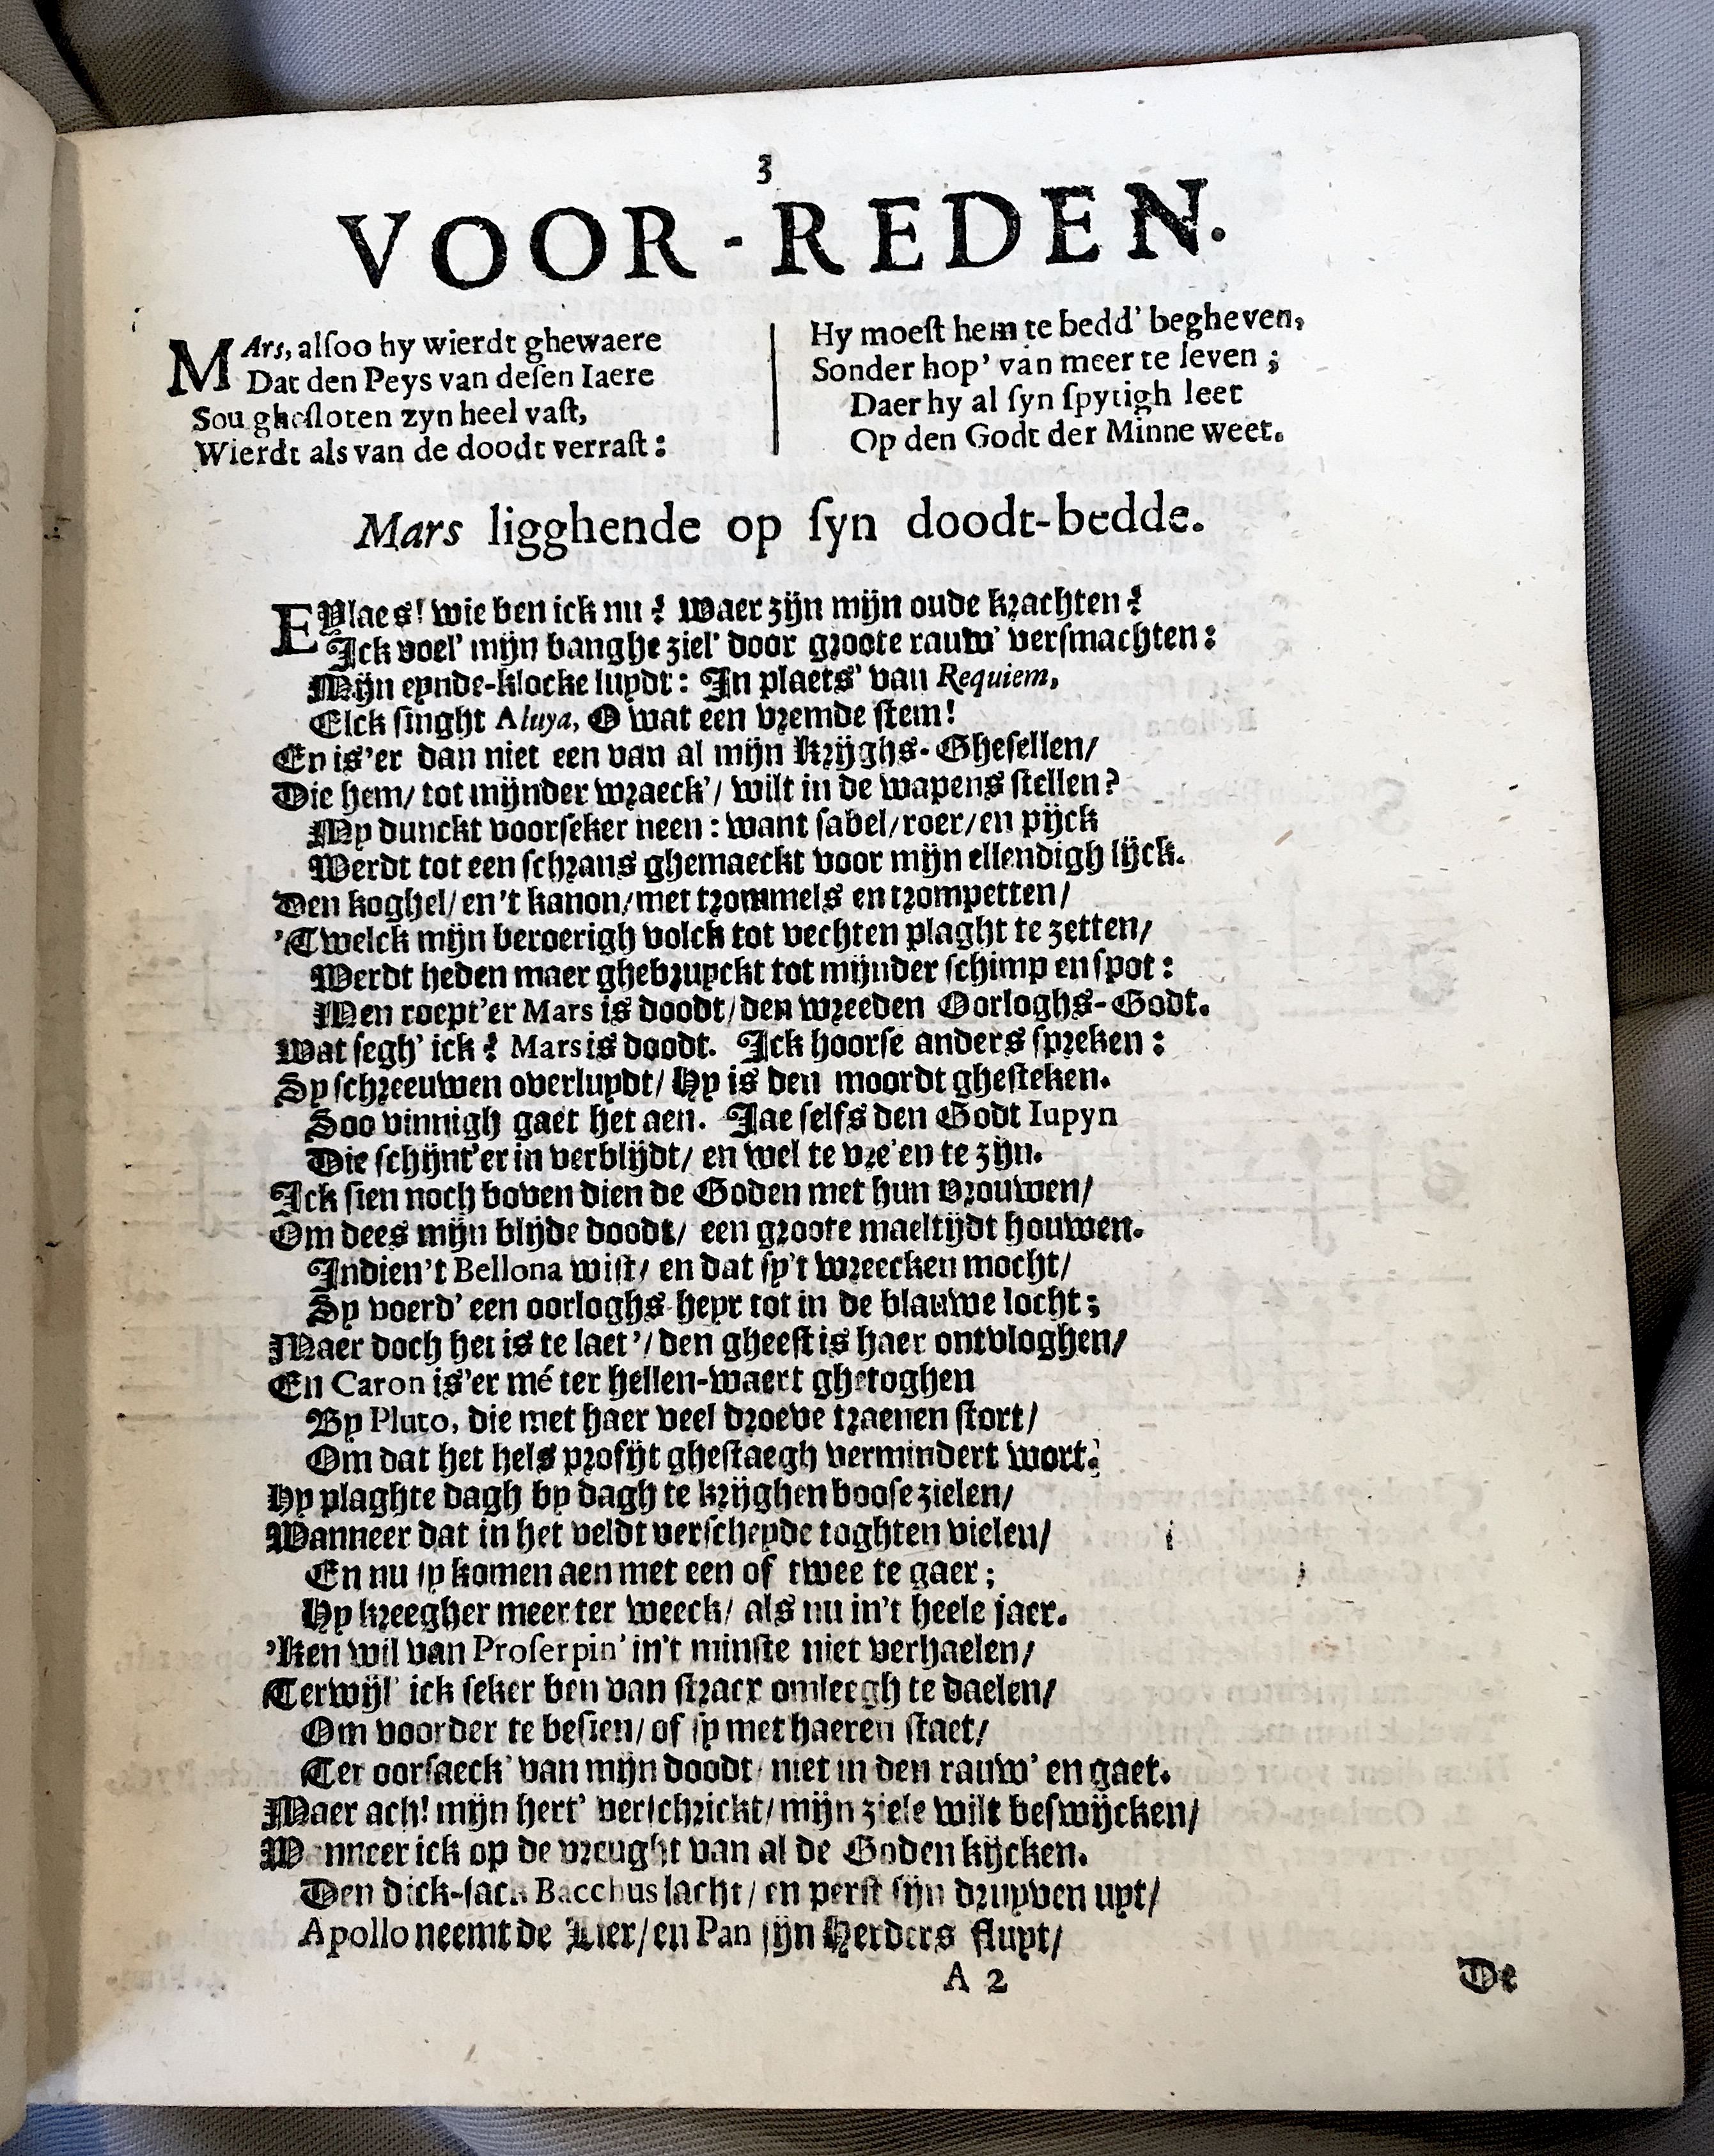 3
VOOR-REDEN.
MArs, alſoo hy wierdt ghewaere
Dat den Peys van deſen Iaere
Sou gheſloten zyn heel vaſt,
Wierdt als van de doodt verraſt:
Hy moeſt hem te bedd' begheven,
Sonder hop' van meer te leven;
Daer hy al ſyn ſpytigh leet
Op den Godt der Minne weet.
Mars ligghende op ſyn doodt-bedde.
EYlaes! wie ben ick nu? Waer zijn mijn oude krachten?
Ick voel' mijn banghe ziel' door groote rauw' verſmachten:
Mijn eynde-klocke luydt: In plaets' van Requiem,
Elck ſinght Aluya, O wat een vremde ſtem!
En is'er dan niet een van al mijn Krijghs-Gheſellen/
Die hem/ tot mijnder wraeck'/ wilt in de wapens ſtellen?
My dunckt voorſeker neen: want ſabel/roer/en pijck
Werdt tot een ſchrans ghemaeckt voor mijn ellendigh lijck.
Den koghel/en't kanon/met trommels en trompetten/
'Twelck mijn beroerigh volck tot vechten plaght te zetten/
Werdt heden maer ghebruyckt tot mijnder ſchimp en ſpot:
Men roept'er Mars is doodt/den wreeden Oorloghs-Godt.
Wat ſegh' ick? Mars is doodt. Ick hoorſe anders ſpreken:
Sy ſchreeuwen overluydt/ Hy is den moordt gheſteken.
Soo vinnigh gaet het aen. Jae ſelfs den Godt Iupyn
Die ſchijnt'er in verblijdt/ en wel te vre'en te zijn.
Ick ſien noch boven dien de Goden met hun vrouwen/
Om dees mijn blijde doodt/ een groote maeltijdt houwen.
Indien't Bellona wiſt/ en dat ſy't wreecken mocht/
Sy voerd' een oorloghs-heyr tot in de blauwe locht;
Maer doch het is te laet'/den gheeſt is haer ontvloghen/
En Caron is'er mé ter hellen-waert ghetoghen
By Pluto, die met haer veel droeve traenen ſtort/
Om dat het hels profijt gheſtaegh vermindert wort.
Hy plaghte dagh by dagh te krijghen booſe zielen/
Wanneer dat in het veldt verſcheyde toghten vielen/
En nu ſy komen aen met een of twee te gaer;
Hy kreegher meer ter weeck/ als nu in't heele jaer.
'Ken wil van Proſerpin' in't minſte niet verhaelen/
Terwijl' ick ſeker ben van ſtracx omleegh te daelen/
Om voorder te beſien/of ſy met haeren ſtaet/
Ter oorſaeck' van mijn doodt/ niet in den rauw' en gaet.
Maer ach! mijn hert' verſchrickt/mijn ziele wilt beſwijcken/
W nneer ick op de vreught van al de Goden kijcken.
Den dick-ſack Bacchus lacht/ en perſt ſijn druyven uyt/
Apollo neemt de Lier/en Pan ſijn Herders fluyt/
A 2
De